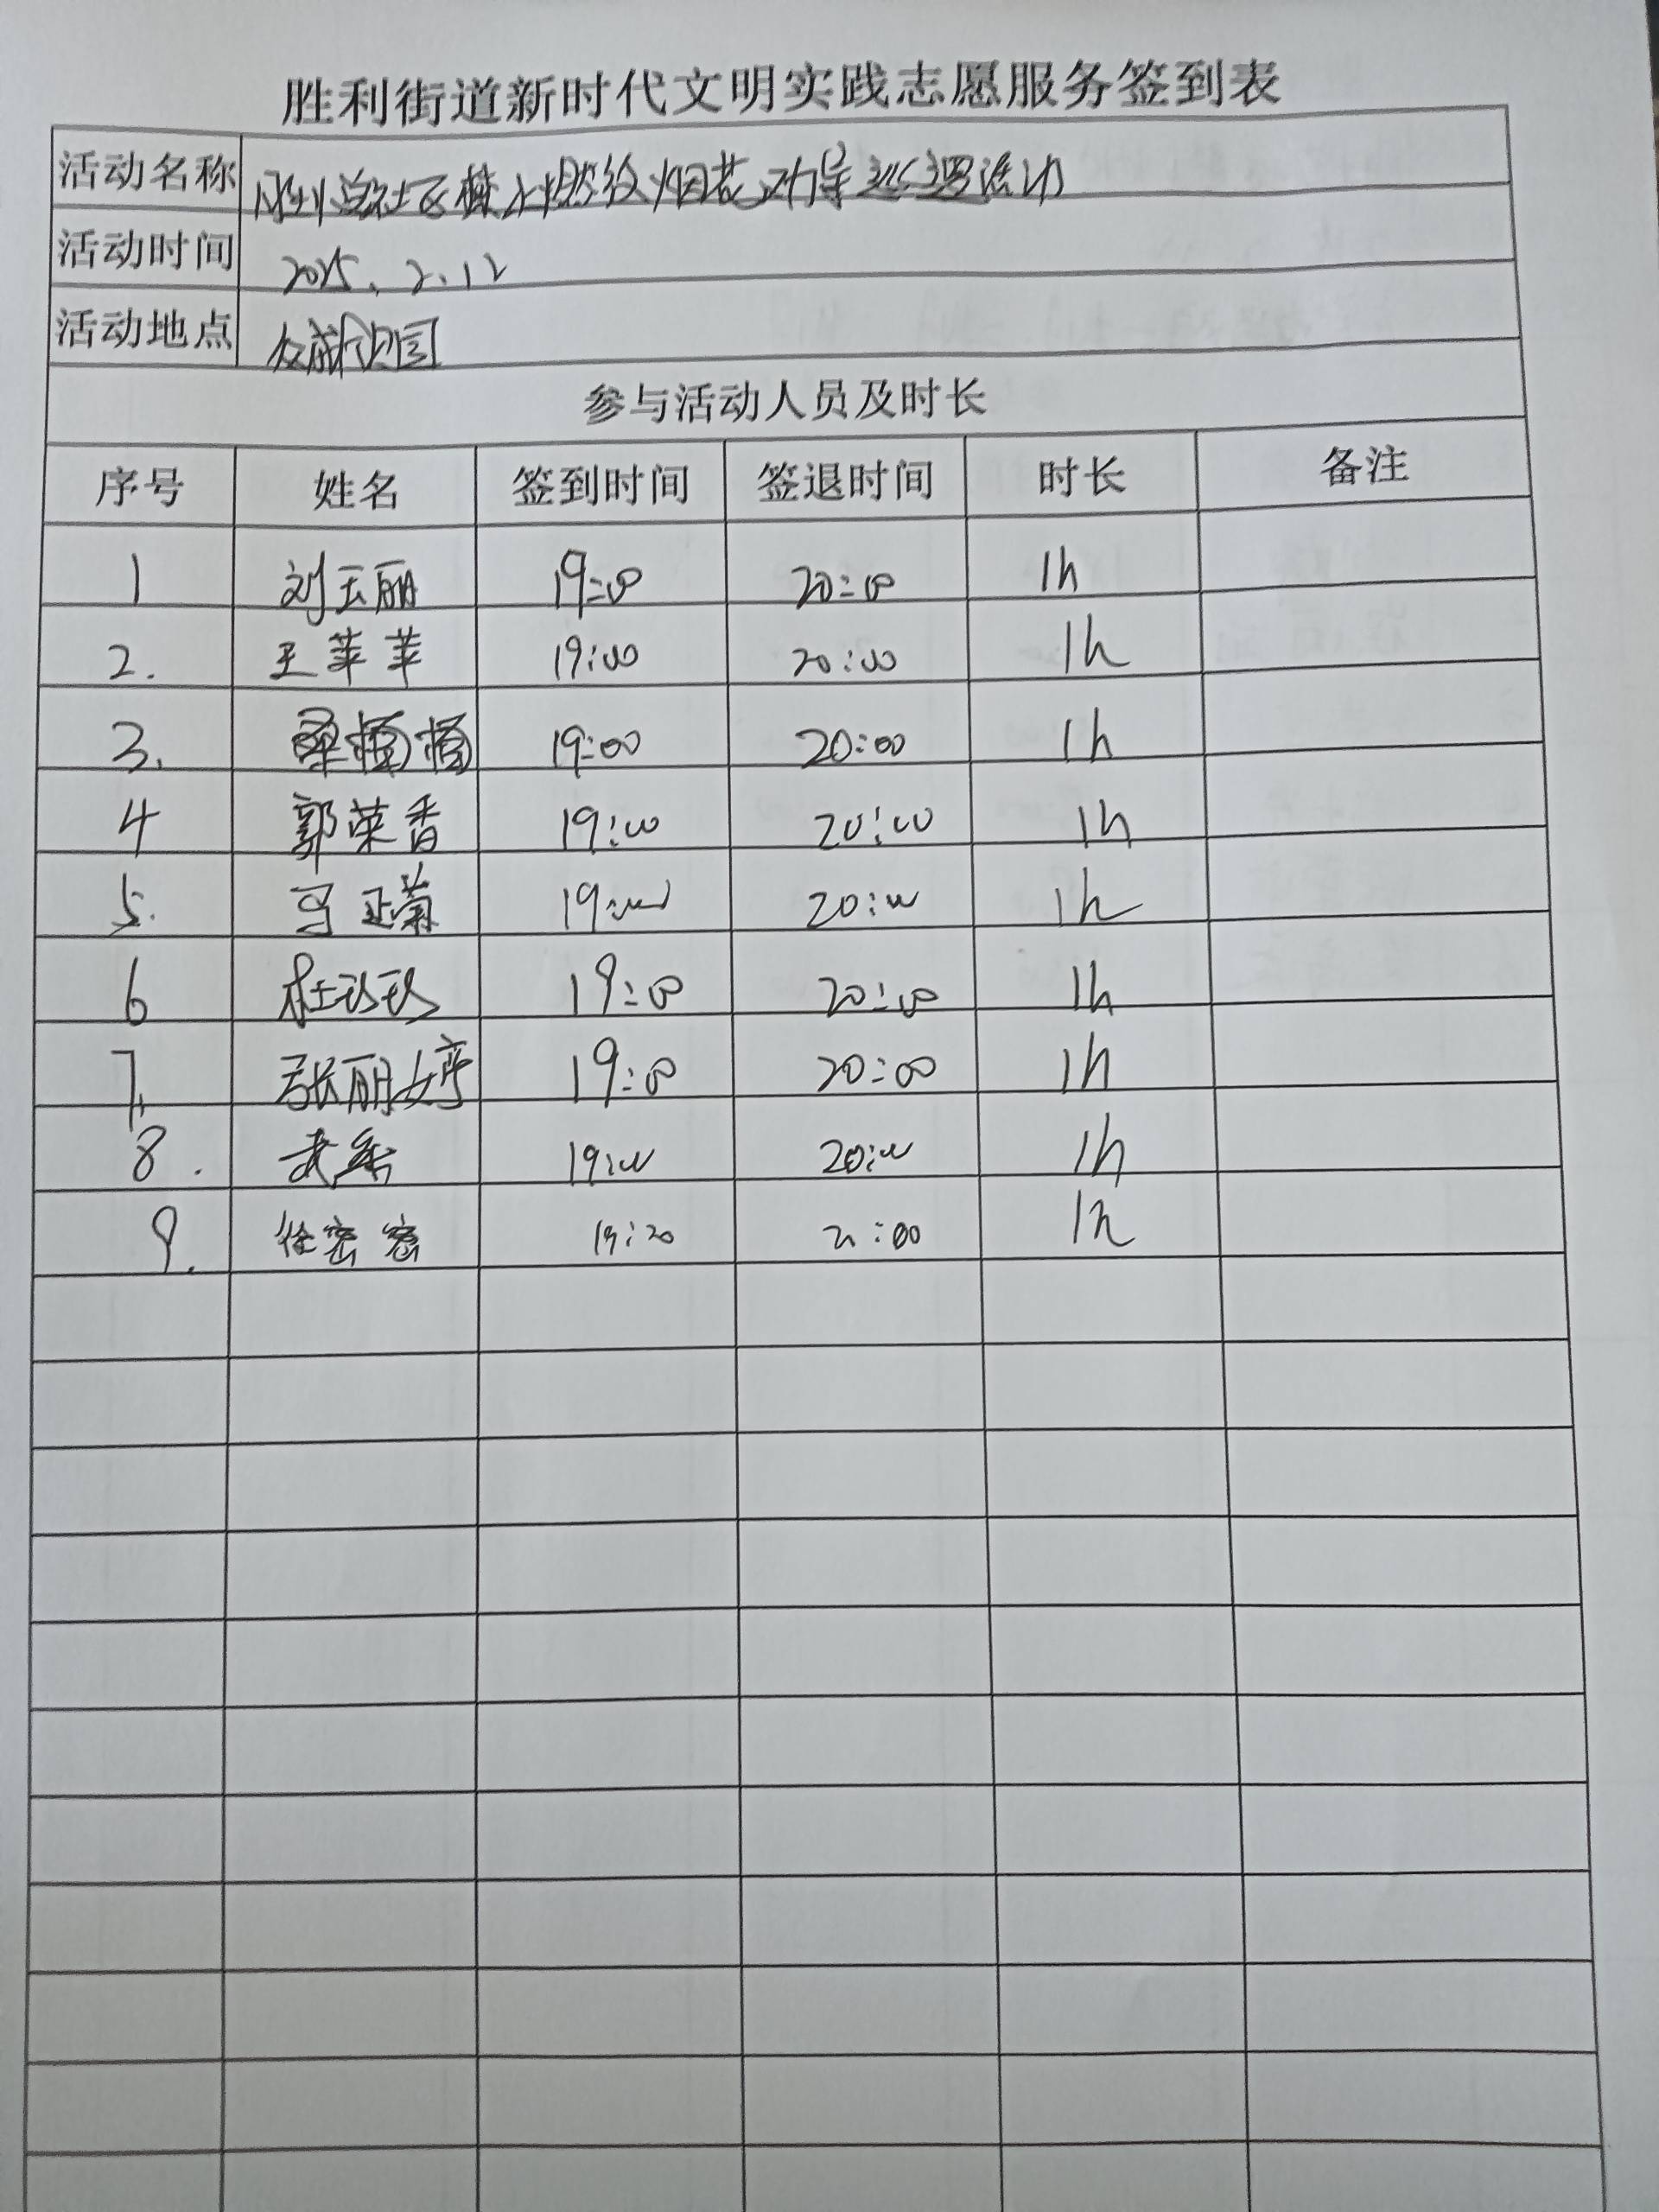 胜利街道新时代文明实践志愿服务签到表
活动名称 社区禁止燃放烟花劝导巡逻活动
活动时间 2025.2.12
活动地点
参与活动人员及时长
序号 姓名 签到时间 签退时间 时长 备注
1 刘玉丽 19:00 20:00 1h
2. 王苹苹 19:00 20:00 1h
3. 19:00 20:00 1h
4 郭荣香 19:00 20:00 1h
5. 马正菊 19:00 20:00 1h
6 杜珍珍 19:00 20:00 1h
7. 张丽婷 19:00 20:00 1h
8. 武 19:00 20:00 1h
9. 任密密 19:20 :00 1h